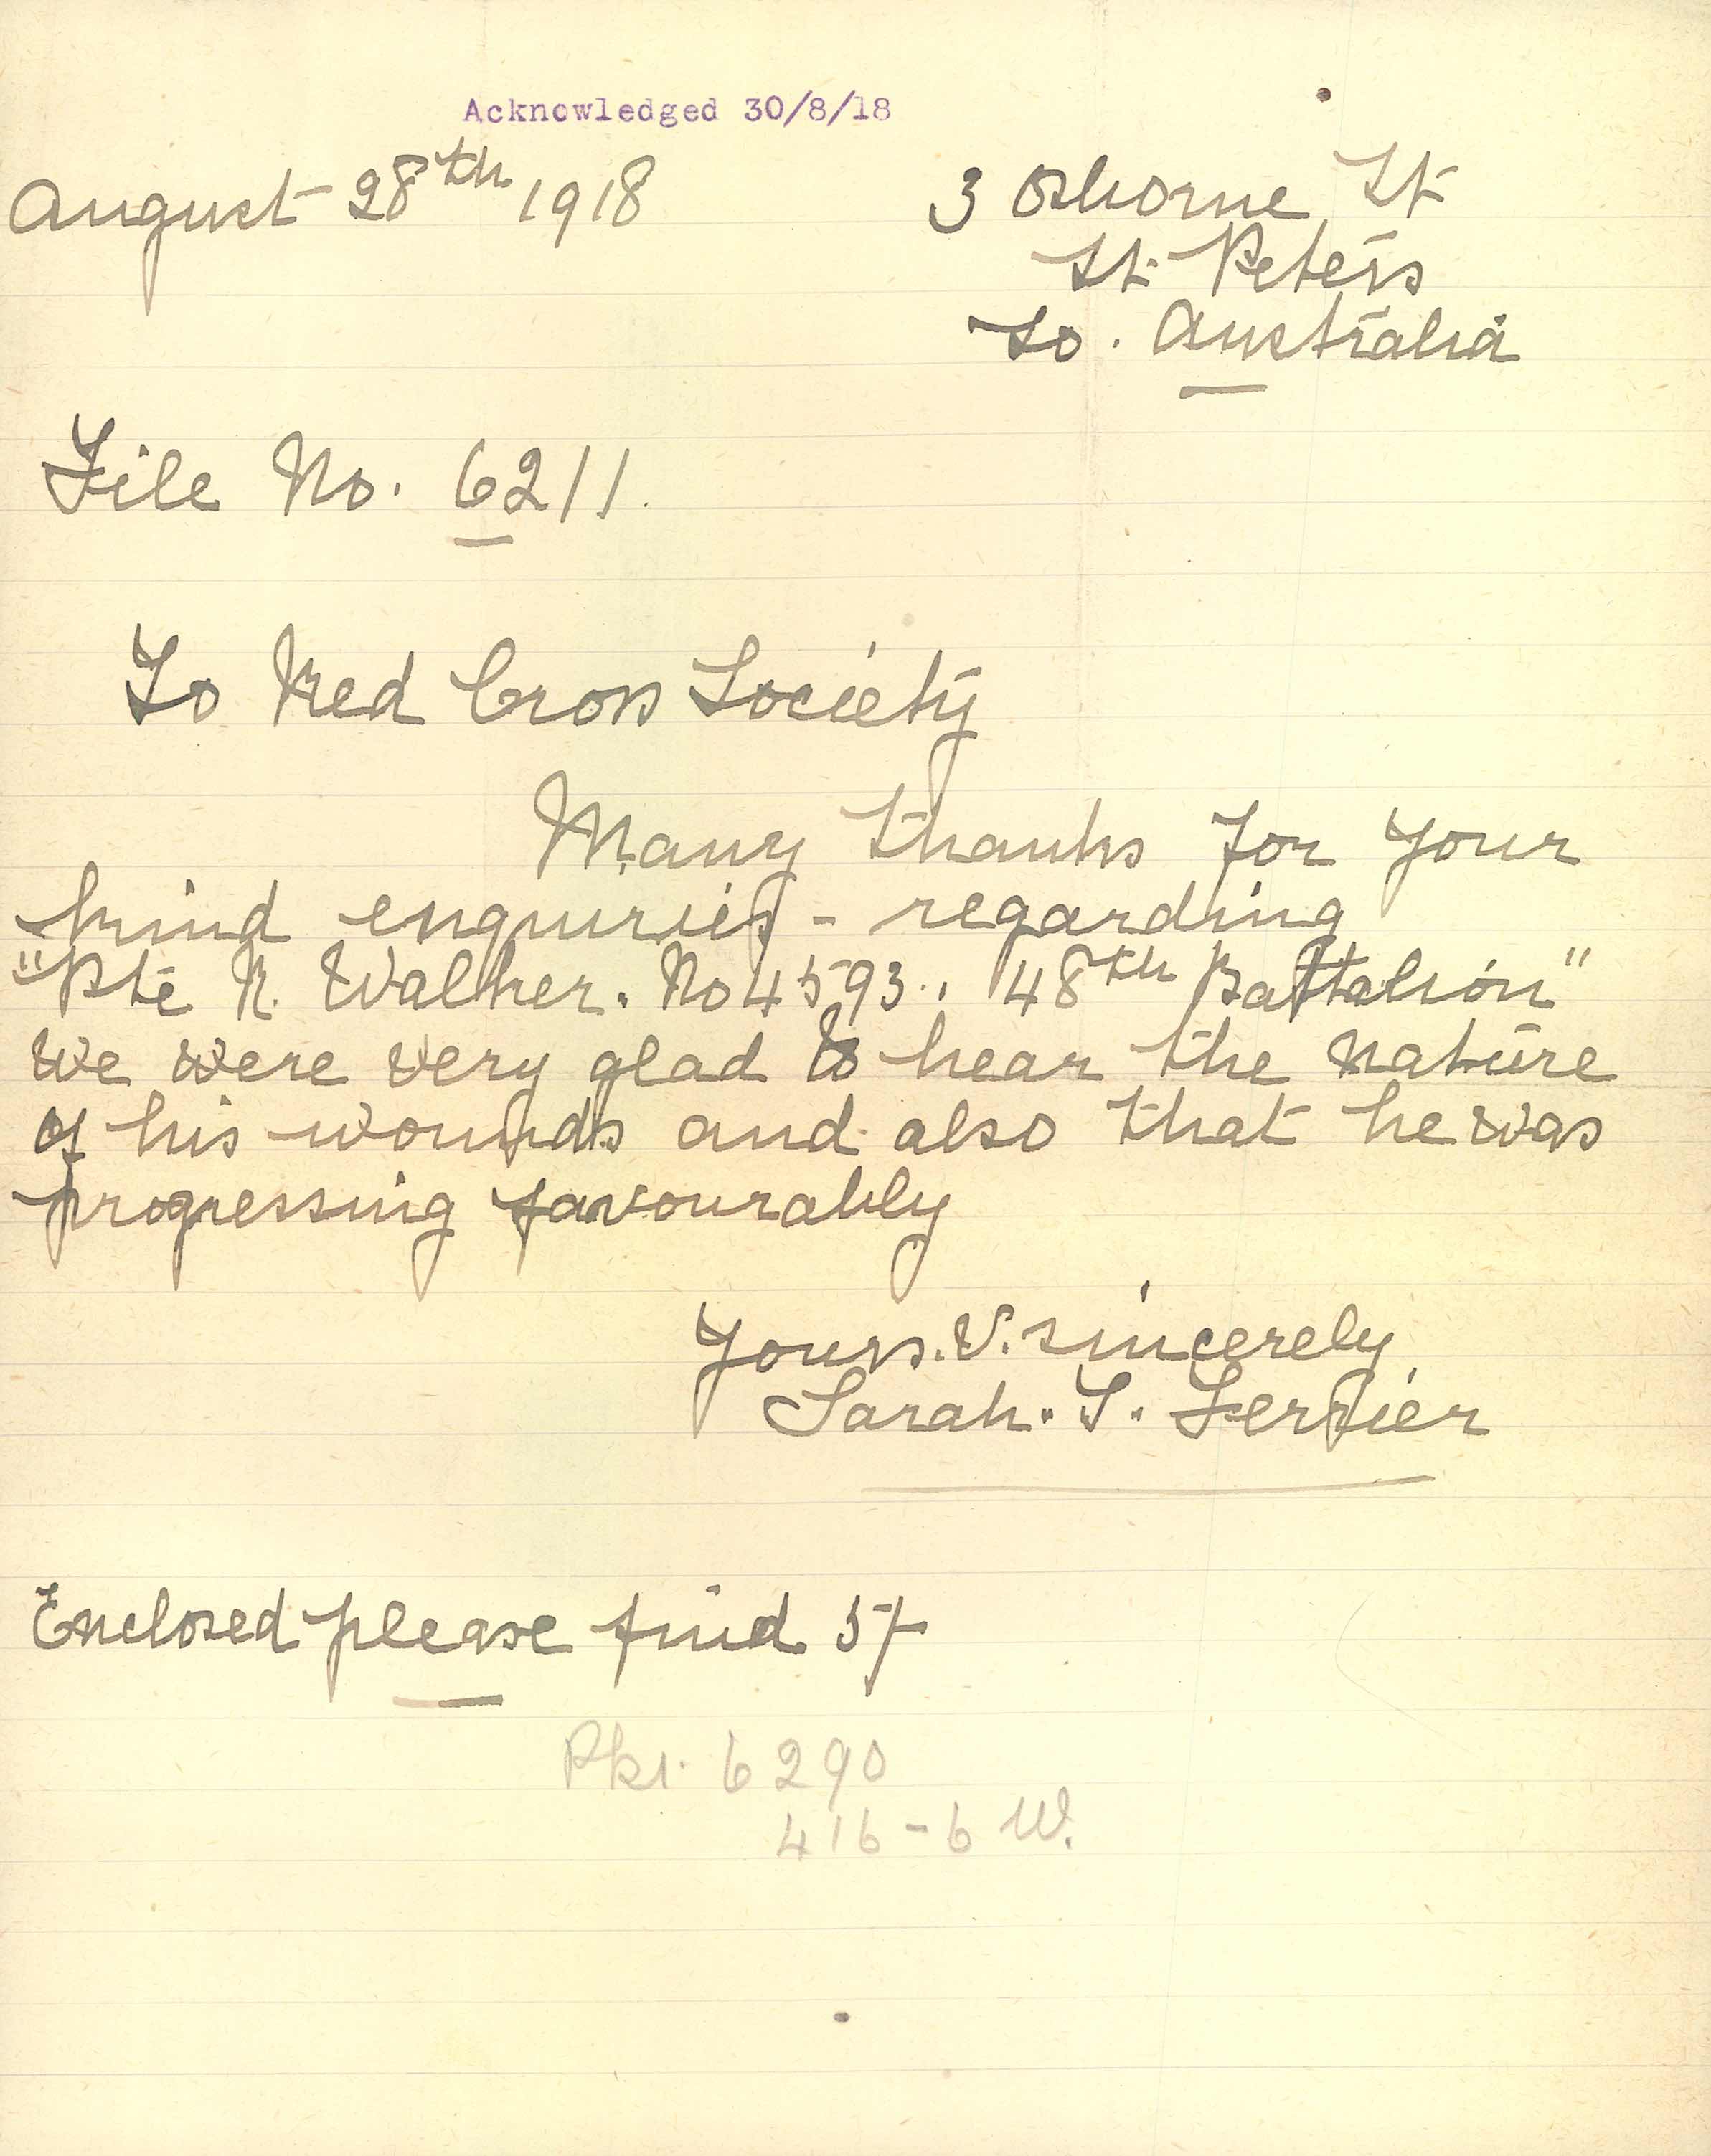 Acknowledged 30/8/18
August 28th 1918
3 Osborne St
St. Peters
So. Australia
File No. 6211.
To Red Cross Society
Many thanks for your
kind enquiries - regarding
"Pte R. Walker. No 4593. 48th Battalion"
we were very glad to hear the nature
of his wounds and also that he was
progressing favourably
Yours. V. sincerely
Sarah. J. Ferrier
Enclosed please find 5/-
Pkt. 6290
416-6 W.